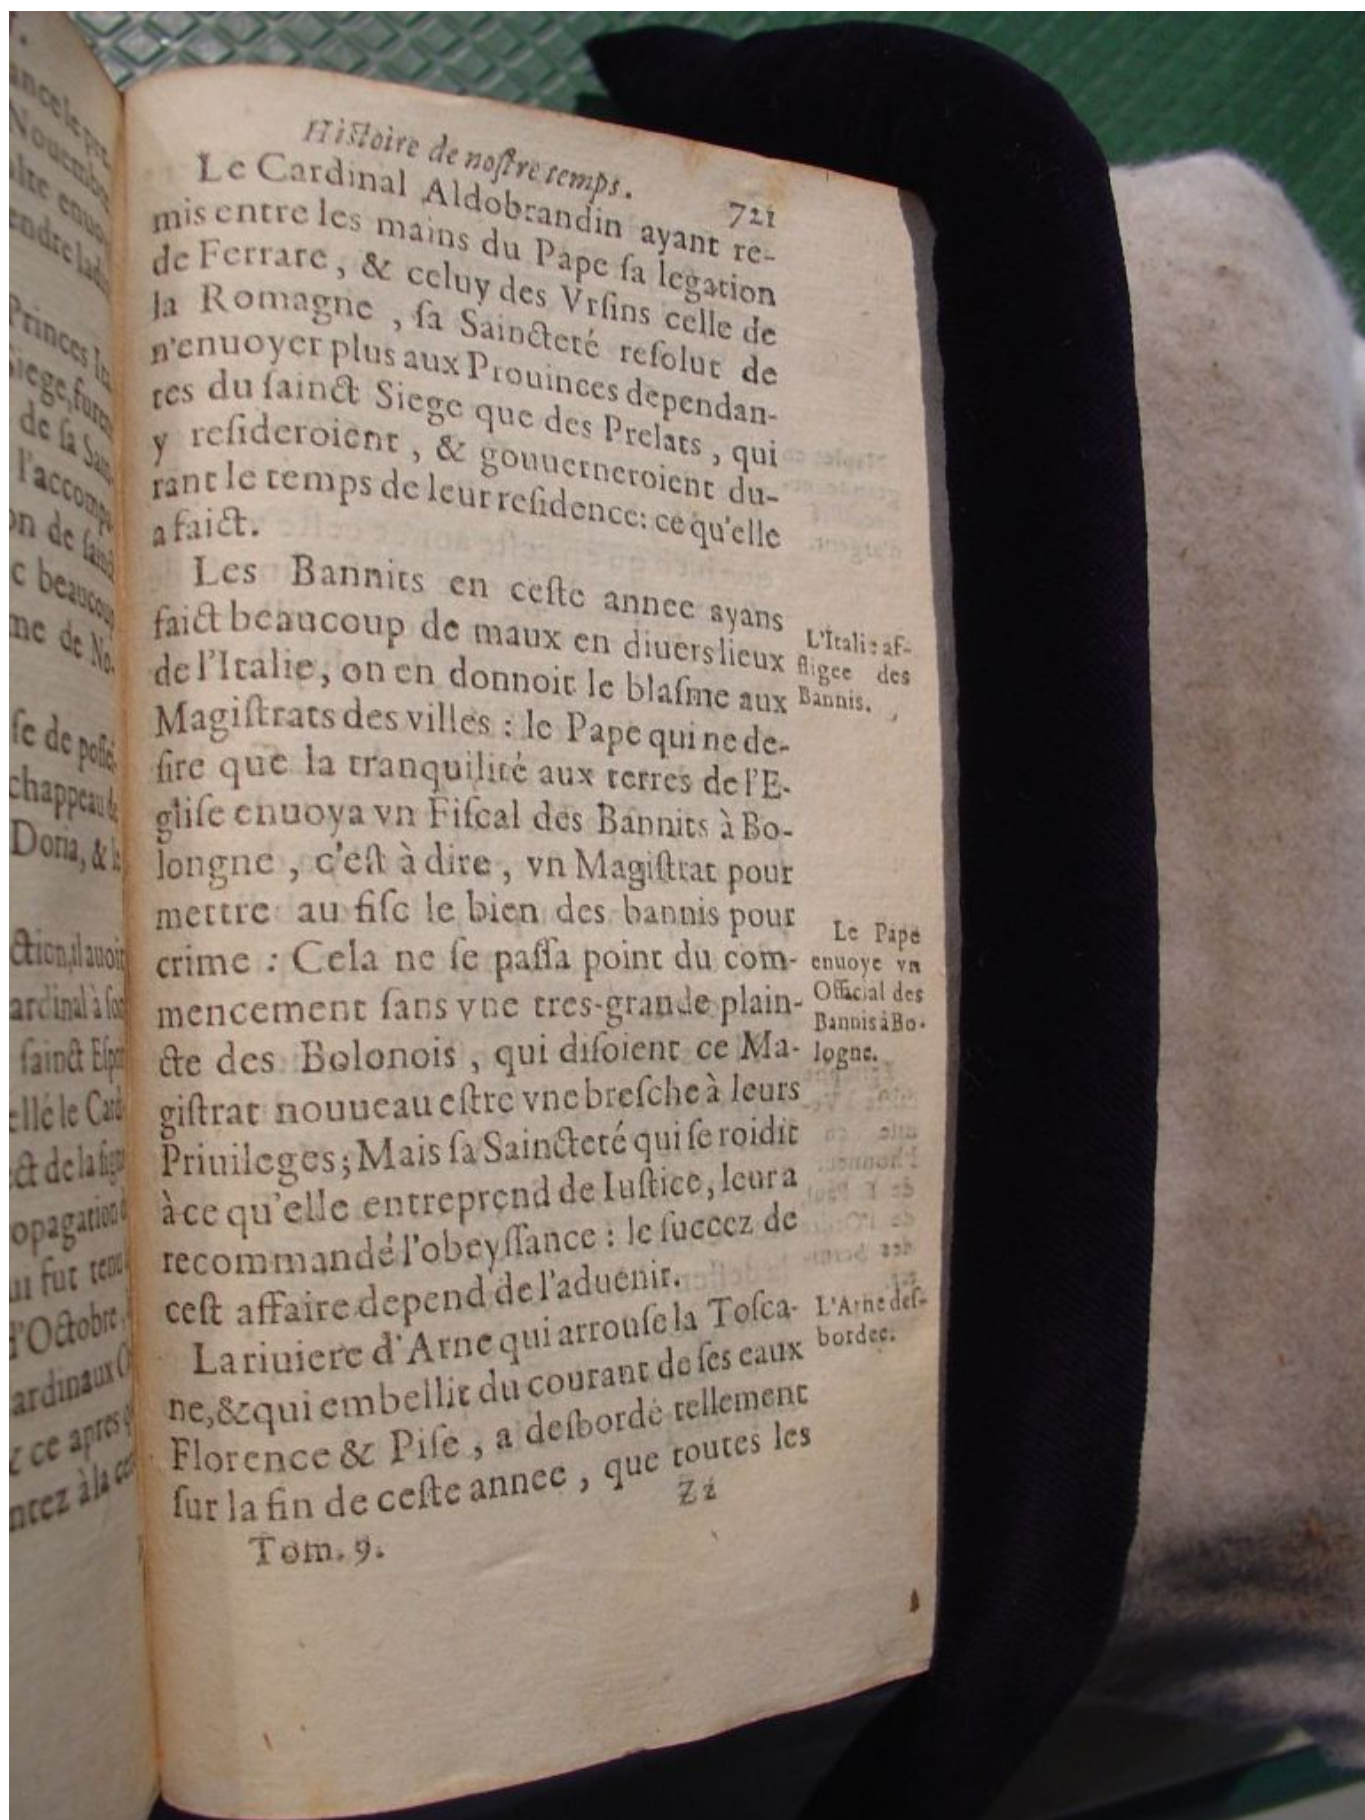 Histoire de nostre temps.
721
Le Cardinal Aldobrandin ayant re-
mis entre les mains du Pape sa legation
de Ferrare, & celuy des Vrsins celle de
la Romagne, sa Saincteté resolut de
n'enuoyer plus aux Prouinces dependan-
tes du sainct Siege que des Prelats, qui
y resideroient, & gouuerneroient du-
rant le temps de leur residence: ce qu'elle
a faict.
Les Bannits en ceste annee ayans
faict beaucoup de maux en diuers lieux
de l'Italie, on en donnoit le blasme aux
Magistrats des villes : le Pape qui ne de-
sire que la tranquilité aux terres de l'E-
glise enuoya vn Fiscal des Bannits à Bo-
longne, c'est à dire, vn Magistrat pour
mettre au fisc le bien des bannis pour
crime : Cela ne se passa point du com-
mencement sans vne tres-grande plain-
cte des Bolonois, qui disoient ce Ma-
gistrat nouueau estre vne bresche à leurs
Priuileges; Mais sa Saincteté qui se roidit
à ce qu'elle entreprend de Iustice, leur a
recommandé l'obeyssance : le succez de
cest affaire depend de l'aduenir.
La riuiere d'Arne qui arrouse la Tosca-
ne, & qui embellit du courant de ses eaux
Florence & Pise, a desbordé tellement
sur la fin de ceste annee, que toutes les
Tom. 9.
Zz
L'Italie af-
fligee des
Bannis.
Le Pape
enuoye vn
Official des
Bannis à Bo-
logne.
L'Arne des-
bordee.
Nouembre
Princes
Siege, furent
de sa
l'accomp
on de sainct
c beaucoup
me de No-
chappeau de
Doria, &
ction, il auoit
sainct
ellé le Card
opagation
ui fut tenu
d'Octobre
ardinaux
ce apres